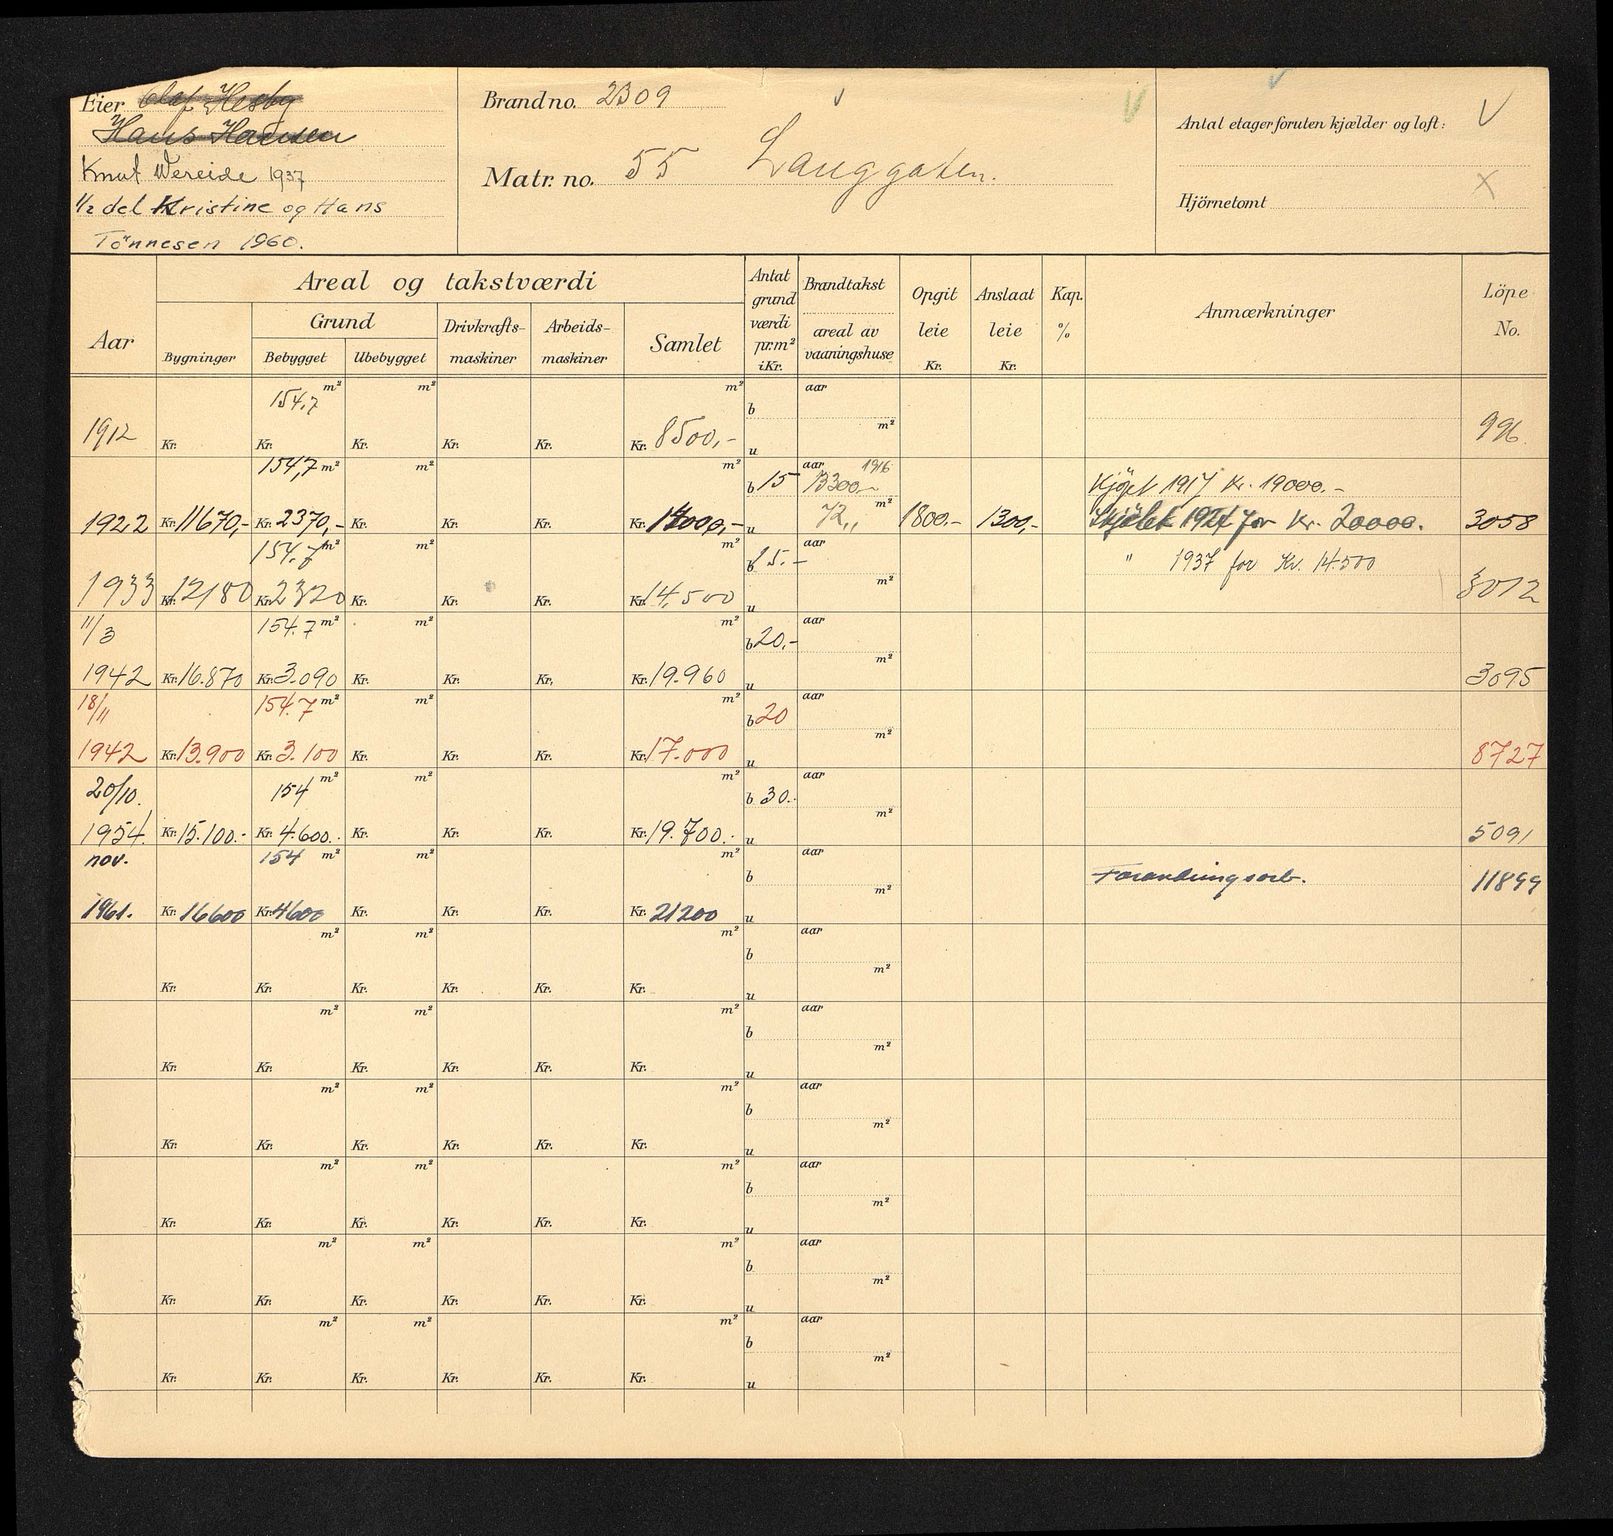 Eier Olaf Hesby
Hans Hansen
Knut Wereide 1937
1/2 del Kristine og Hans
Tönnesen 1960.
Brandno. 2309
Matr. no. 55 Langgaten.
Antal etager foruten kjælder og loft: V
Hjörnetomt X
Aar
Areal og takstværdi
Bygninger
Grund
Bebygget
Ubebygget
Drivkrafts-maskiner
Arbeids-maskiner
Samlet
Antat grund værdi pr. m² i Kr.
Brandtakst
areal av vaaningshuse
Opgit leie Kr.
Anslaat leie Kr.
Kap. %
Anmærkninger
Löpe No.
154,7 m² m² m² aar
b m²
1912 Kr. Kr. Kr. Kr. Kr. Kr. 8500,- u 996.
154,7 m² m² m² b 15 aar 1916 13300,- Kjöpt 1917 Kr. 19000.-
1922 Kr. 11670,- Kr. 2370,- Kr. Kr. Kr. Kr. 14000,- u 72,, m² 1800.- 1300,- 1927 for Kr. 20000. 3058
154.7 m² m² m² b 15.- aar " 1937 for Kr. 14.500
1933 Kr. 12180 Kr. 2320 Kr. Kr. Kr. Kr. 14,500 u m² 3012
11/3 154.7 m² m² m² b 20.- aar
1942 Kr. 16.870 Kr. 3.090 Kr. Kr. Kr. Kr. 19.960 u m² 3095
18/11 154.7 m² m² m² b 20 aar
1942 Kr. 13.900 Kr. 3.100 Kr. Kr. Kr. Kr. 17.000 u m² 8727
20/10. 154 m² m² m² b 30.- aar
1954. Kr. 15.100.- Kr. 4.600.- Kr. Kr. Kr. Kr. 19.700.- u m² 5091
nov. 154 m² m² m² b aar Forandringsarb. 11899
1961. Kr. 16600 Kr. 4600 Kr. Kr. Kr. Kr. 21200 u m²
m² m² m² b aar
Kr. Kr. Kr. Kr. Kr. Kr. u m²
m² m² m² b aar
Kr. Kr. Kr. Kr. Kr. Kr. u m²
m² m² m² b aar
Kr. Kr. Kr. Kr. Kr. Kr. u m²
m² m² m² b aar
Kr. Kr. Kr. Kr. Kr. Kr. u m²
m² m² m² b aar
Kr. Kr. Kr. Kr. Kr. Kr. u m²
m² m² m² b aar
Kr. Kr. Kr. Kr. Kr. Kr. u m²